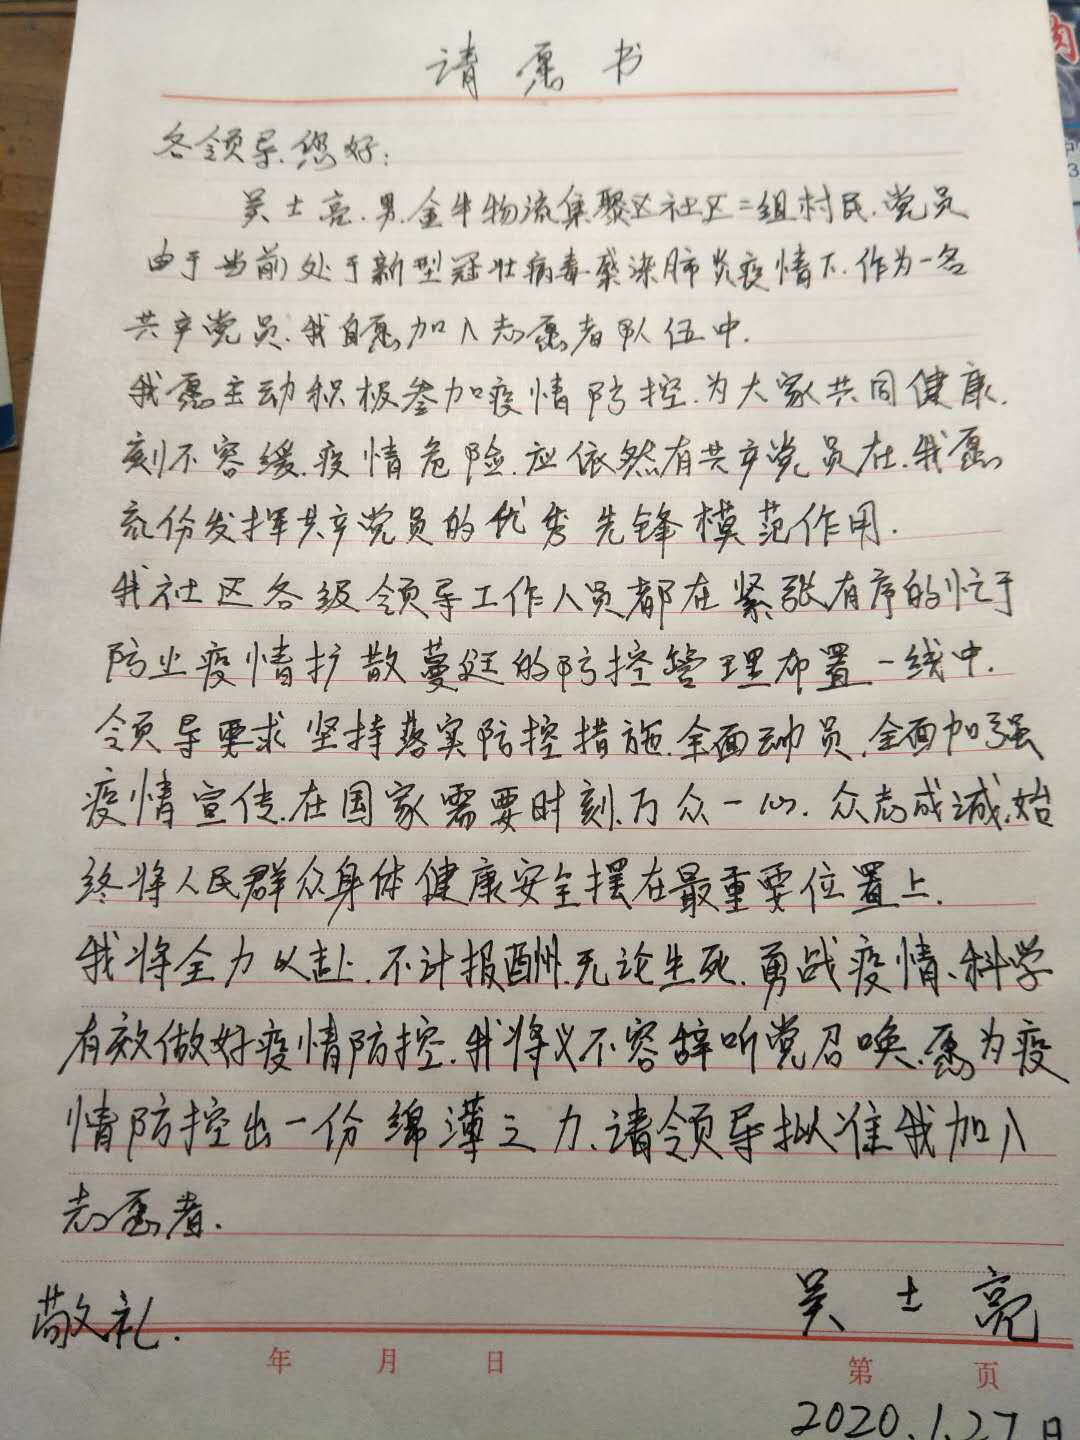 请愿书
各领导.您好:
吴士亮.男.金牛物流集聚区社区二组村民.党员
由于当前处于新型冠壮病毒感染肺炎疫情下.作为一名
共产党员.我自愿加入志愿者队伍中.
我愿主动积极参加疫情防控.为大家共同健康.
刻不容缓.疫情危险.应依然有共产党员在.我愿
充份发挥共产党员的优秀先锋模范作用.
我社区各级领导工作人员都在紧张有序的忙于
防止疫情扩散蔓延的防控管理布置一线中.
领导要求坚持落实防控措施.全面动员.全面加强
疫情宣传.在国家需要时刻.万众一心.众志成诚.始
终将人民群众身体健康安全摆在最重要位置上.
我将全力以赴.不计报酬.无论生死.勇战疫情、科学
有效做好疫情防控.我将义不容辞听党召唤.愿为疫
情防控出一份绵薄之力、请领导批准我加入
志愿者.
敬礼.
吴士亮
年 月 日
第 页
2020.1.27日